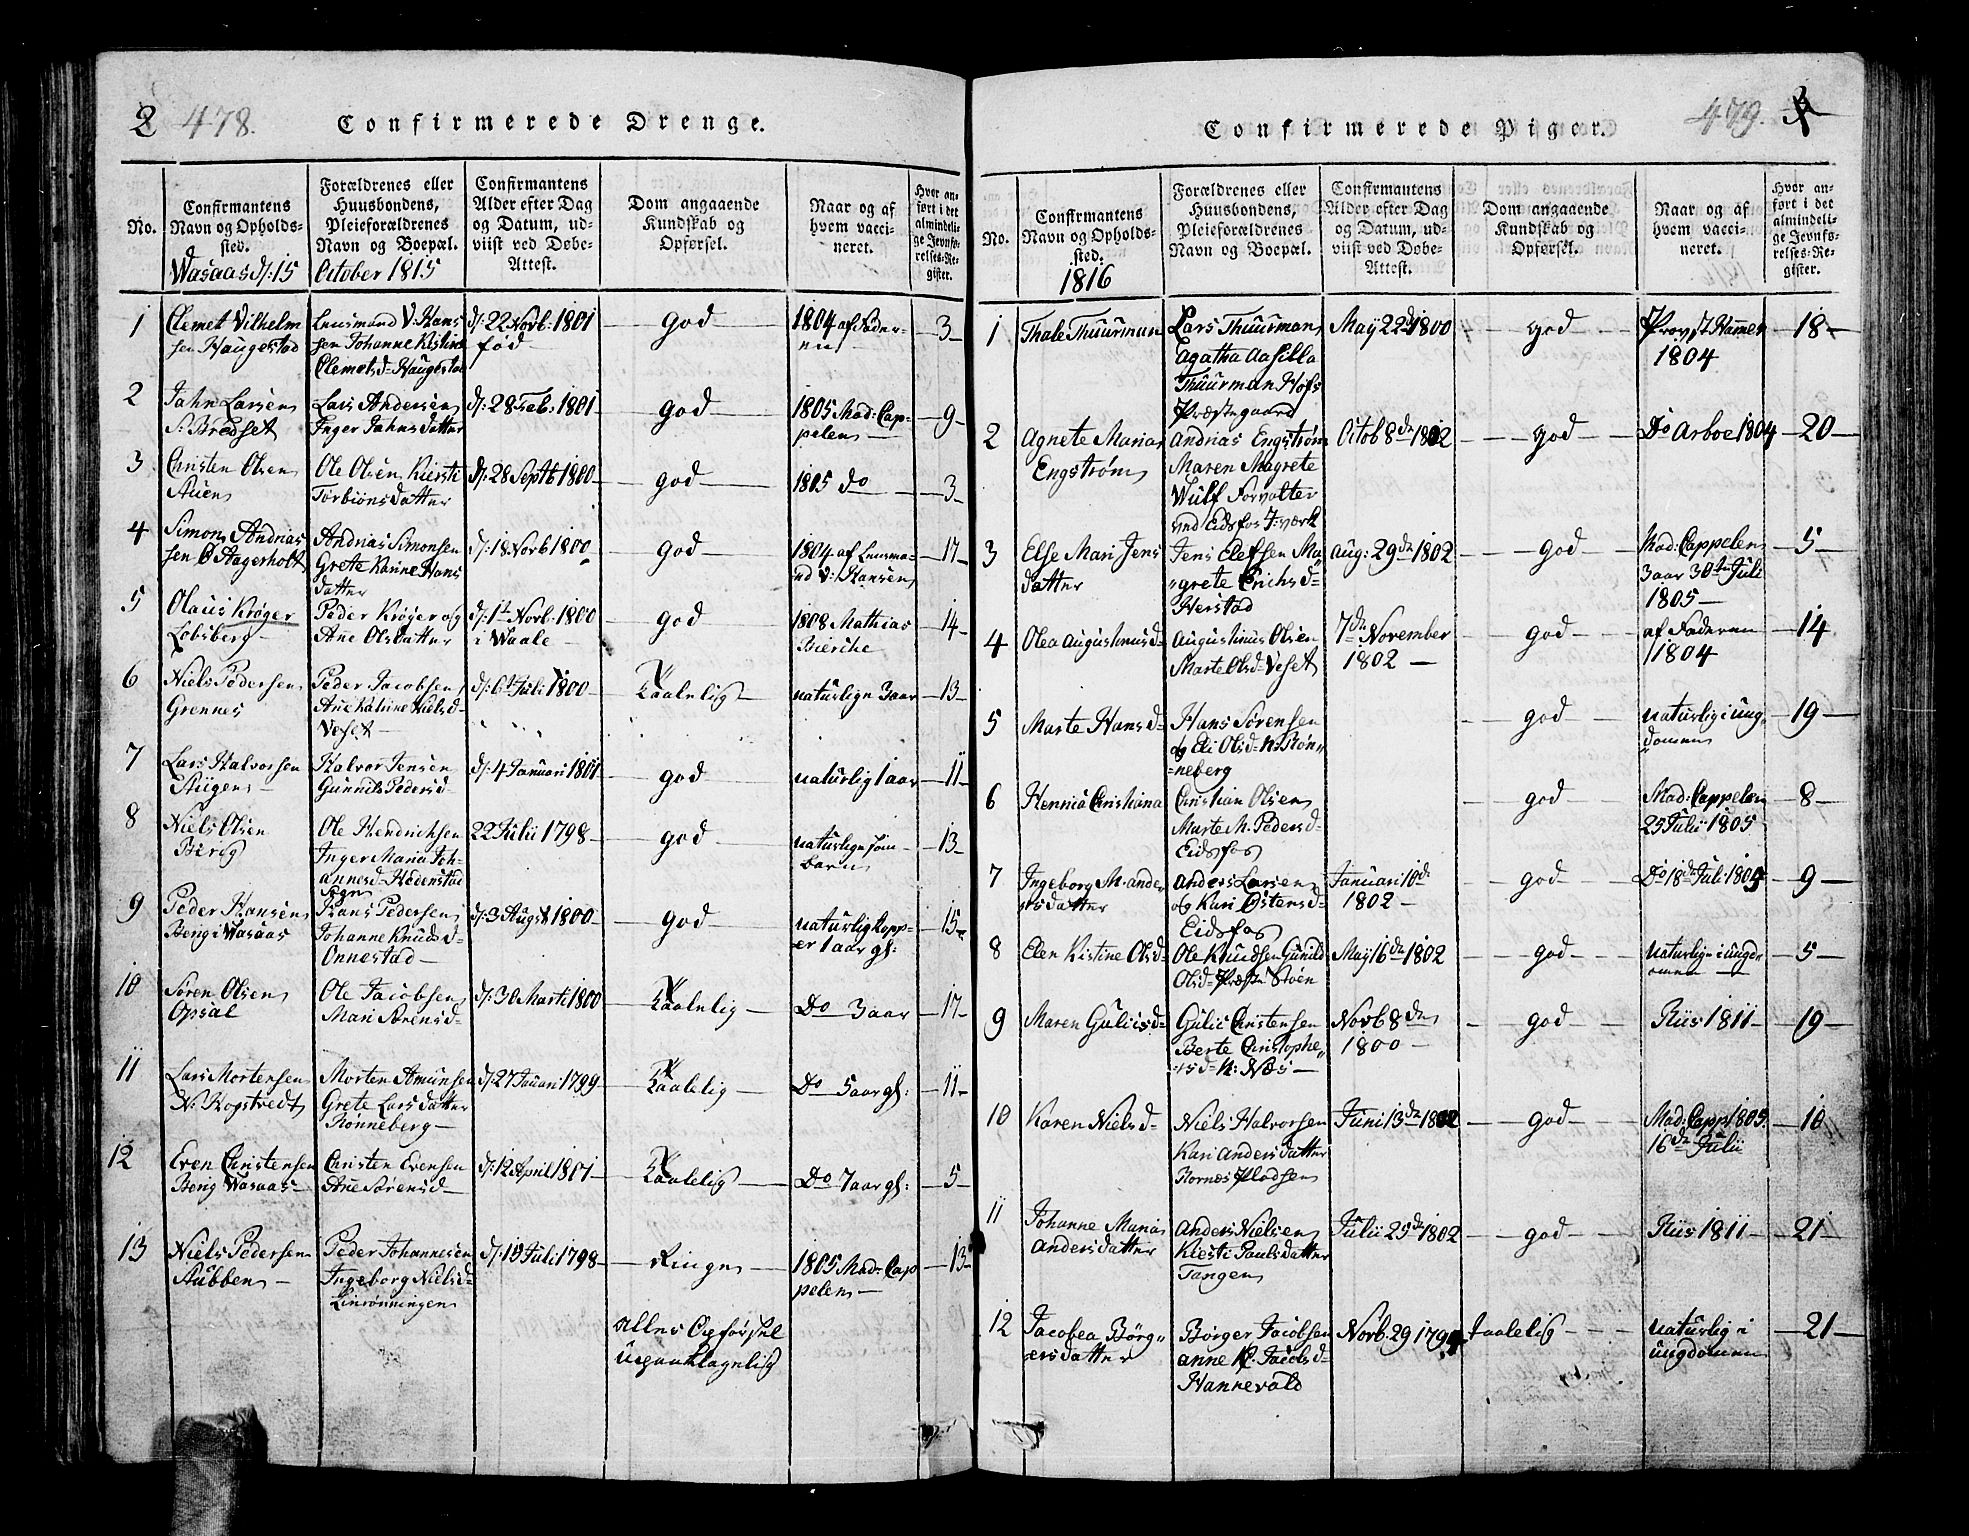 2 478.
Confirmerede Drenge.
No.
Confirmantens
Navn og Opholds-
sted.
Forældrenes eller
Huusbondens,
Pleieforældrenes
Navn og Boepæl.
Confirmantens
Alder efter Dag
og Datum, ud-
viist ved Døbe-
Attest.
Dom angaaende
Kundskab og
Opførsel.
Naar og af
hvem vacci-
neret.
Hvor an-
ført i det
almindeli-
ge Jevnfø-
relses-Re-
gister.
Wasaas d: 15 October 1815
1 Clemet Vilhelm
sen Haugestad
Lensmand V: Hans
sen Johanne Kistine
Clemetsd= Haugestad
d: 22 Novb: 1801
fød
god
1804 af Fader-
en
3
2 Jahn Larsen
S: Bredset
Lars Andersen
Inger Jahnsdatter
d: 28 Feb: 1801
god
1805 Mad: Cap-
pelen
9
3 Christen Olsen
Auen
Ole Olsen Kiersti
Torbionsdatter
d: 28 Septb 1800
god
1805 do
3
4 Simon Andrias
sen Ø Aagerholt
Andrias Simonsen
Grete Karine Hans
datter
d: 18 Novb 1800
god
1804 af Lensma-
nd V: Hansen
17
5 Olaus Krøger
Løbsberg
Peder Krøger og
Ane Olsdatter
d: 1t Novb: 1800
i Waale
god
1808 Mathias
Bierche
14
6 Niels Pedersen
Grennes
Peder Jacobsen
Ane Katrine Nielsd=
Veset
d: 6t Juli 1800
taalelig
naturlign 3 aar
13
7 Lars Halvorsen
Augen
Halvor Jensen
Gunnild Pedersd=
d: 4 Januari 1801
god
naturlig 1 aar
11
8 Niels Olsen
Berg
Ole Hendrichsen
Inger Maria Joh-
annesd= Hedenstad
Sogn
22 Julii 1798
god
naturlign som
barn
13
9 Peder Hansen
Berg i Wasaas
Hans Pedersen
Johanne Knudsd=
Onnestad
d: 3 Augst 1800
god
naturlig kopp-
er 1 aar gl:
15
10 Søren Olsen
Opsal
Ole Jacobsen
Mari Sørensd=
d: 30 Marti 1800
taalelig
Do 3 aar
17
11 Lars Mortensen
N: Kopstvedt
Morten Amunsen
Grete Larsdatter
Rønneberg
d: 27 Januari 1799
taalelig
Do 5 aar gl:
11
12 Even Christensen
Berg Wasaas
Christen Evensen
Ane Sørensd=
d: 12 April 1801
taalelig
Do 7 aar gl:
5
13 Niels Pedersen
Stubben
Peder Johannesen
Ingeborg Nielsd=
Linrønningen
d: 10 Juli 1798
Ringe
1805 Mad: Cap
pelen
13
Alles Opførsel
upaaklagelig
479. 3
Confirmerede Piger.
No.
Confirmantens
Navn og Opholds-
sted.
1816
Forældrenes eller
Huusbondens,
Pleieforældrenes
Navn og Boepæl.
Confirmantens
Alder efter Dag
og Datum, ud-
viist ved Døbe-
Attest.
Dom angaaende
Kundskab og
Opførsel.
Naar og af
hvem vacci-
neret.
Hvor an-
ført i det
almindeli-
ge Jevnfø-
relses-Re-
gister.
1 Thale Thuurman
Lars Thuurman
Agatha Aasilla
Thuurman Hofs
Præstegaard
May 22d 1800
god
Provst Hammer
1804
18
2 Agnete Maria
Engstrøm
Andrias Engstrøm
Maren Magrete
Wulf Forvalter
ved Eidsfos J: værk
Octob 8de 1802
god
Do Arboe 1804
20
3 Else Mari Jens
datter
Jens Elefsen Ma
grete Erichsd=
Herstad
Aug: 29de 1802
god
Mad: Cappelen
3 aar 30te Juli
1805
5
4 Olea Augustinusd=
Augustinus Olsen
Marte Olsd= Veset
7de November
1802
god
af Faderen
1804
14
5 Marte Hansd=
Hans Sørensen
og Eli Olsd= N: Røn
=neberg
god
naturlig i ung
domen
19
6 Hennia Christiana
Christian Olsen
Marte M. Pedersd=
Eidsfos
god
Mad: Cappelen
25 Julii 1805
8
7 Ingeborg M. Ander
rsdatter
Anders Larsen
og Kari Østensd=
Eidsfos
Januari 10de
1802
god
Do 18de Juli 1805
9
8 Elen Kistine Olsd=
Ole Knudsen Gunild
Olsd= Præste Støen
May 16de 1802
god
naturlign i ungd=
omen
5
9 Maren Guliisd=
Gulic Christensen
Berte Christophe
rsd= N: Næs
Novb 8de
1800
god
Riis 1811
19
10 Karen Nielsd=
Niels Halvorsen
Kari Andersdatter
Hornes Pladsen
Juni 13de 1802
god
Mad: Capp: 1805
16de Julii
10
11 Johanne Maria
Andersdatter
Anders Nielsen
Kiesti Paulsdatter
Tangen
Julii 25de 1802
god
Riis 1811
21
12 Jacobea Børg
ersdatter
Børger Jacobsen
Anne K. Jacobsd=
Hannevold
Novb. 29 1794
taalelig
naturlig i
ungdomen
21